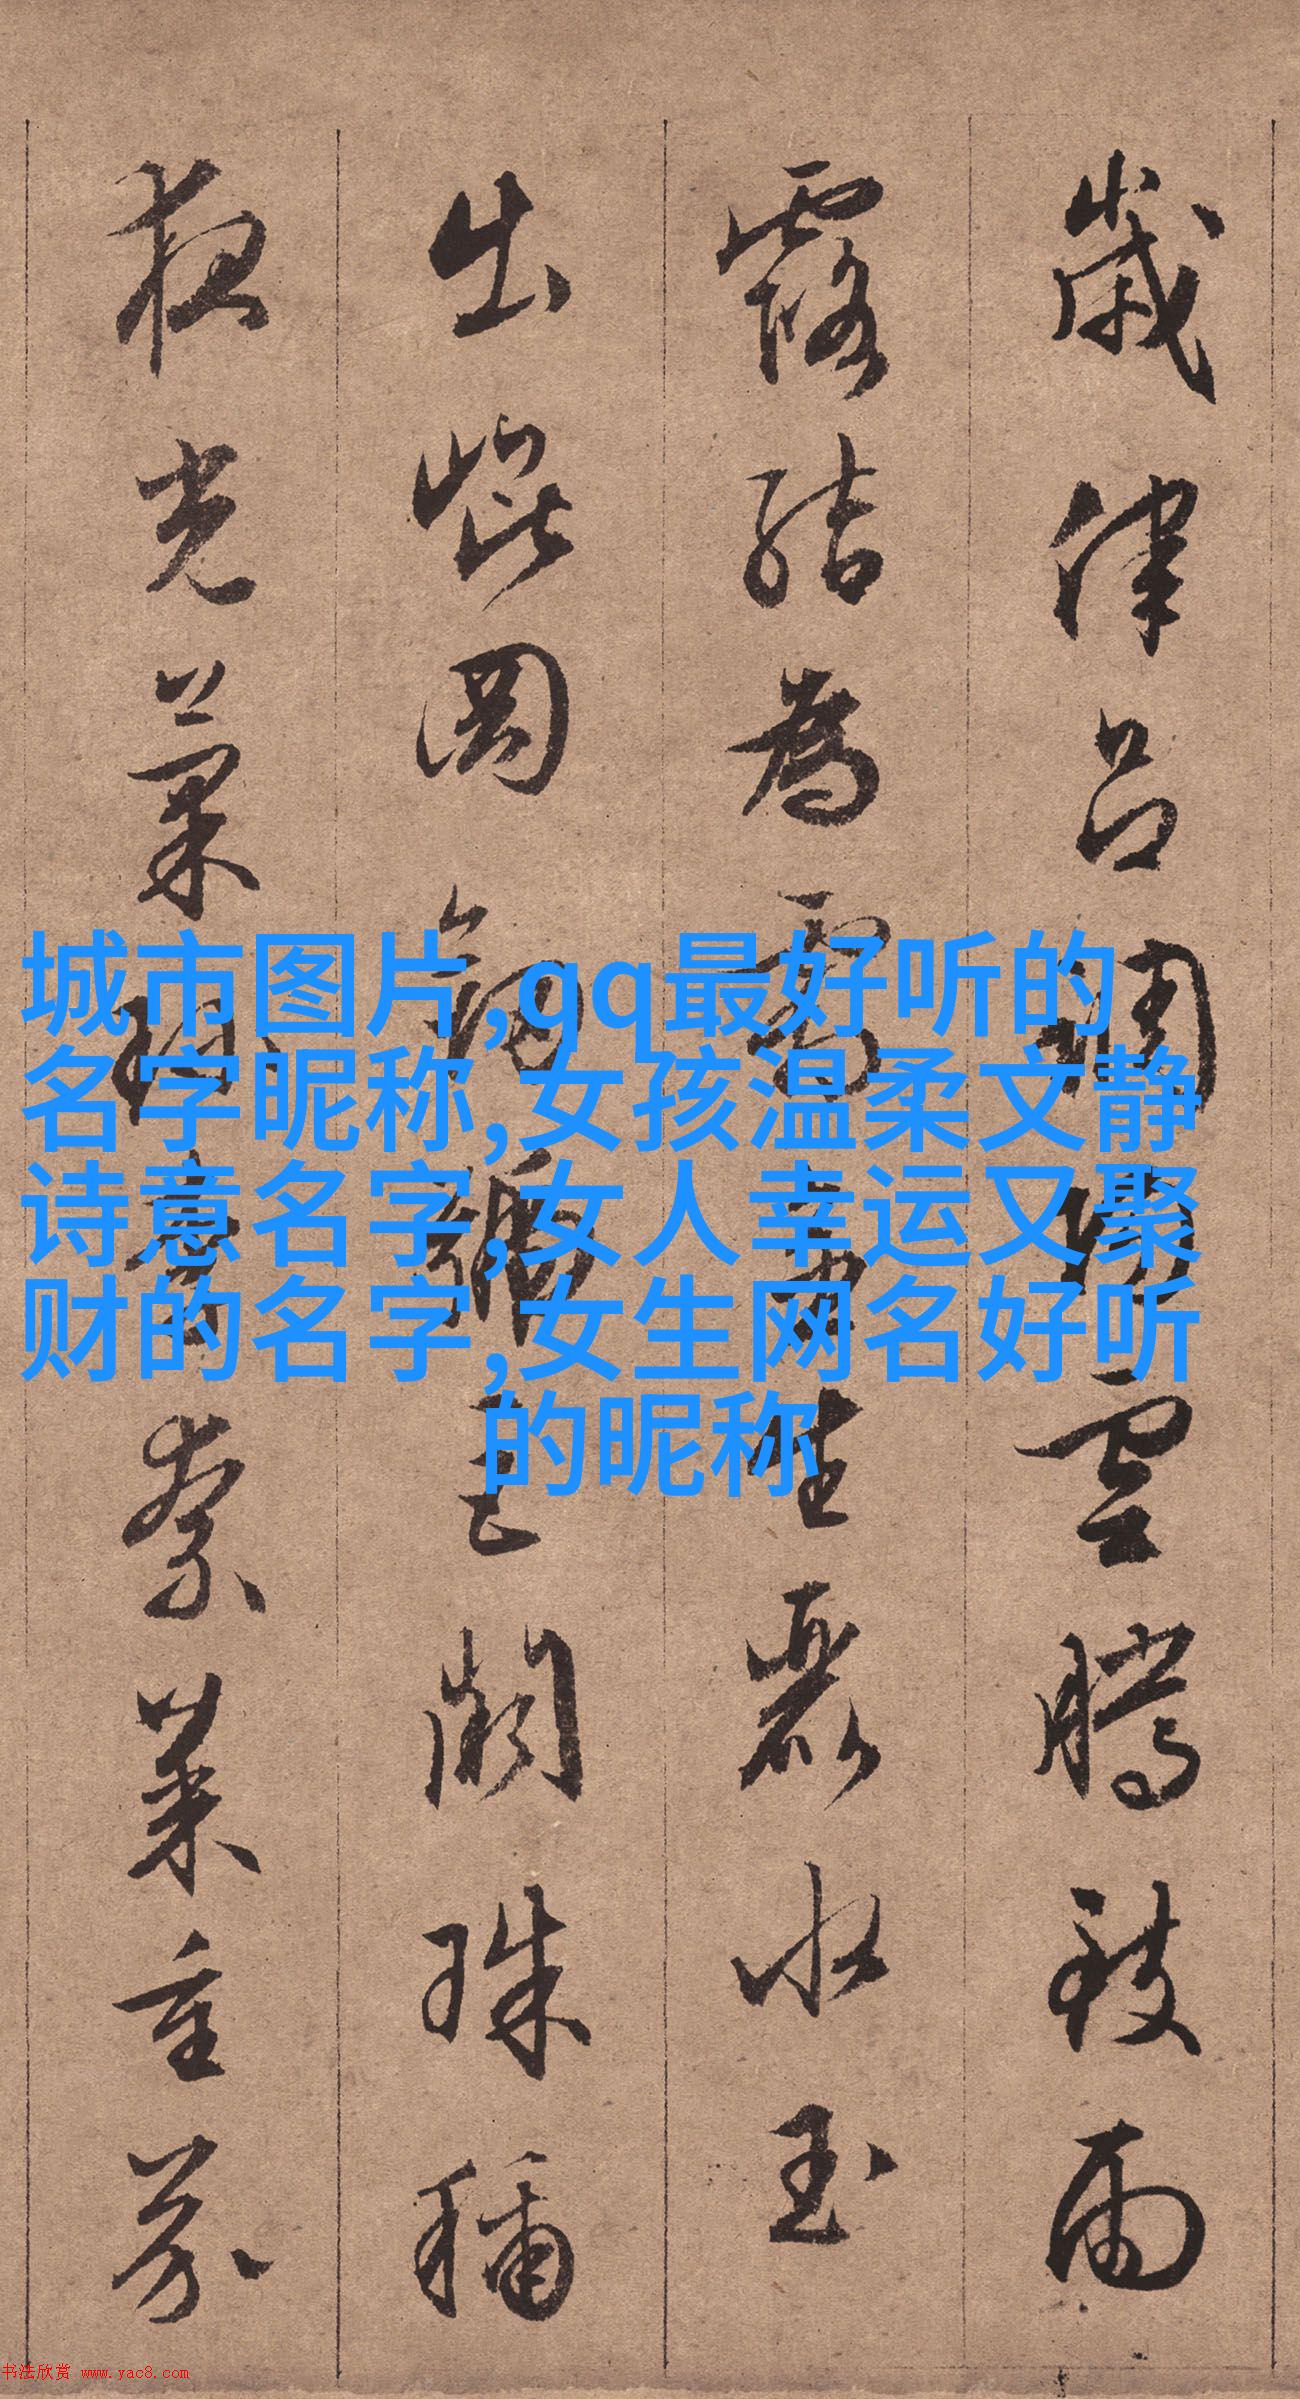 歲律呂調陽雲騰致雨
露結為霜金生麗水玉
出崐岡劍號巨闕珠稱
夜光菓珎李柰菜重芥
城市图片,qq最好听的
名字昵称,女孩温柔文静
诗意名字,女人幸运又聚
财的名字,女生网名好听
的昵称
书法欣赏 www.yac8.com